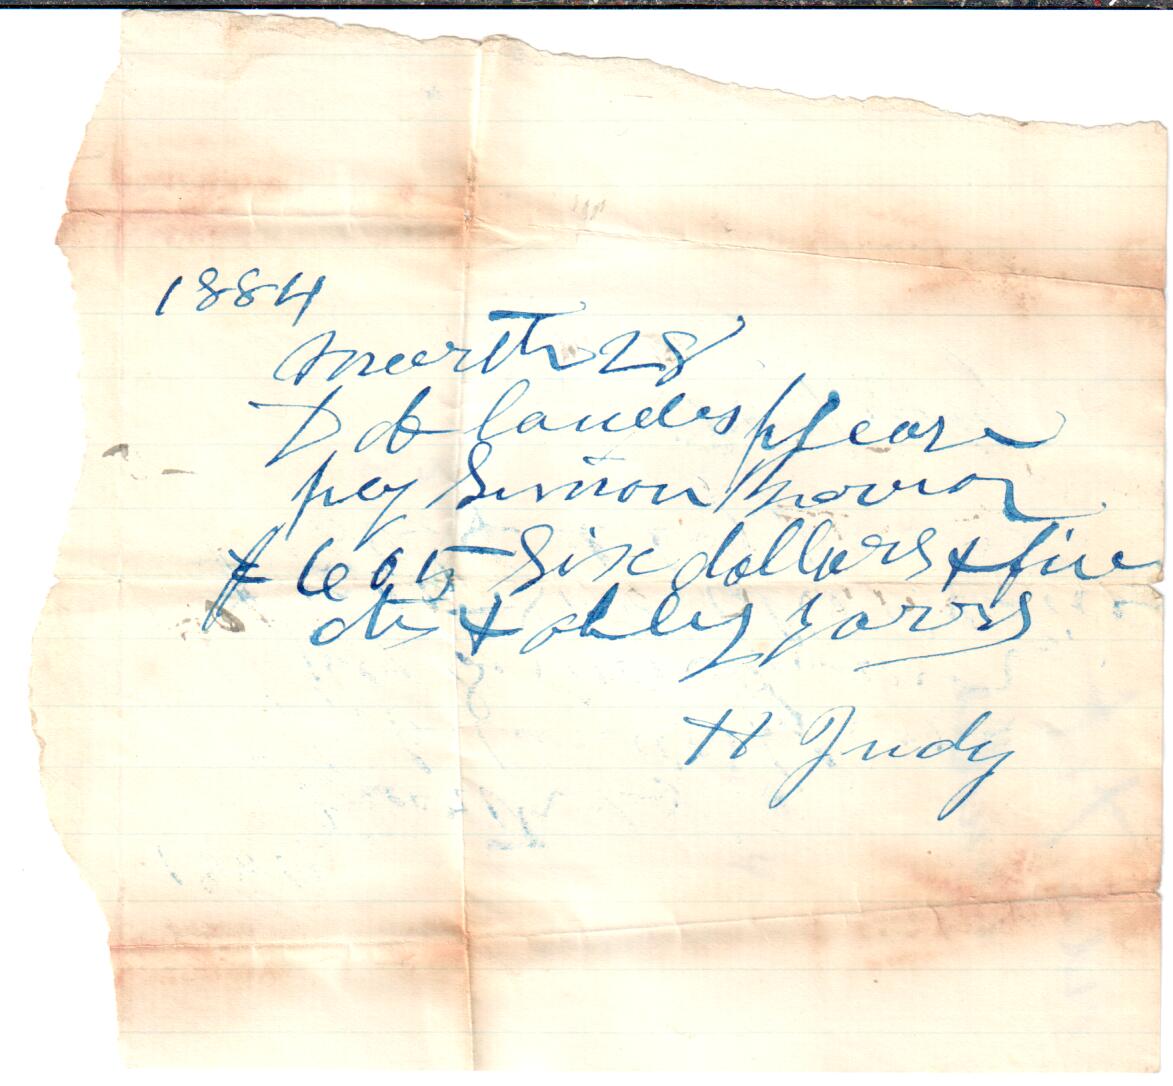 1884
March 28
D H Landes please
pay Simon
$ 6 05 Six dollars & five
cts & oblig yours
H Judy